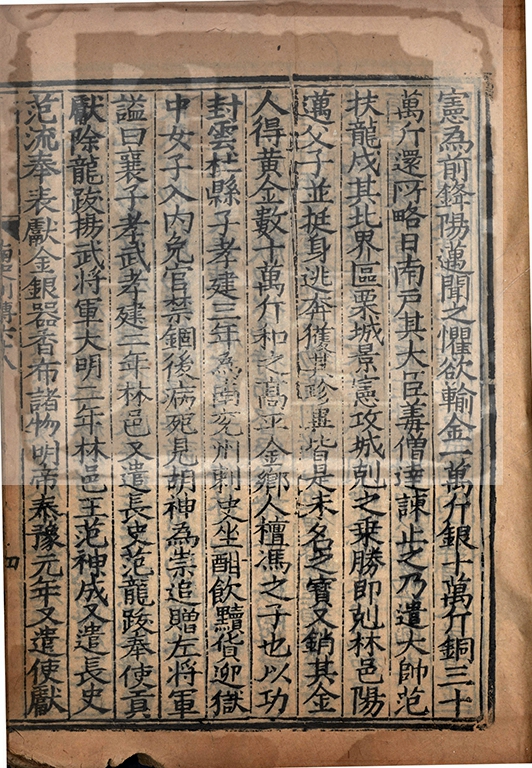 憲為前鋒陽邁聞之懼欲輸金一萬斤銀十萬斤銅三十
萬斤還所略日南戶其大臣僧達諫止之乃遣大帥范
扶龍戍其北界區栗城景憲攻城剋之乗勝即剋林邑陽
邁父子並挺身逃奔獲其珍異皆是未名之寶又銷其金
人得黃金數十萬斤和之髙平金鄉人檀馮之子也以功
封雲杜縣子孝建三年為南兖州刺史坐酣飲黷貨迎獄
中女子入內免官禁錮後病死見胡神為祟追贈左將軍
謚曰襄子孝武孝建二年林邑又遣長史范龍跋奉使貢
獻除龍跋揚武將軍大明二年林邑王范神成又遣長史
范流奉表獻金銀器香布諸物明帝泰豫元年又遣使獻
四